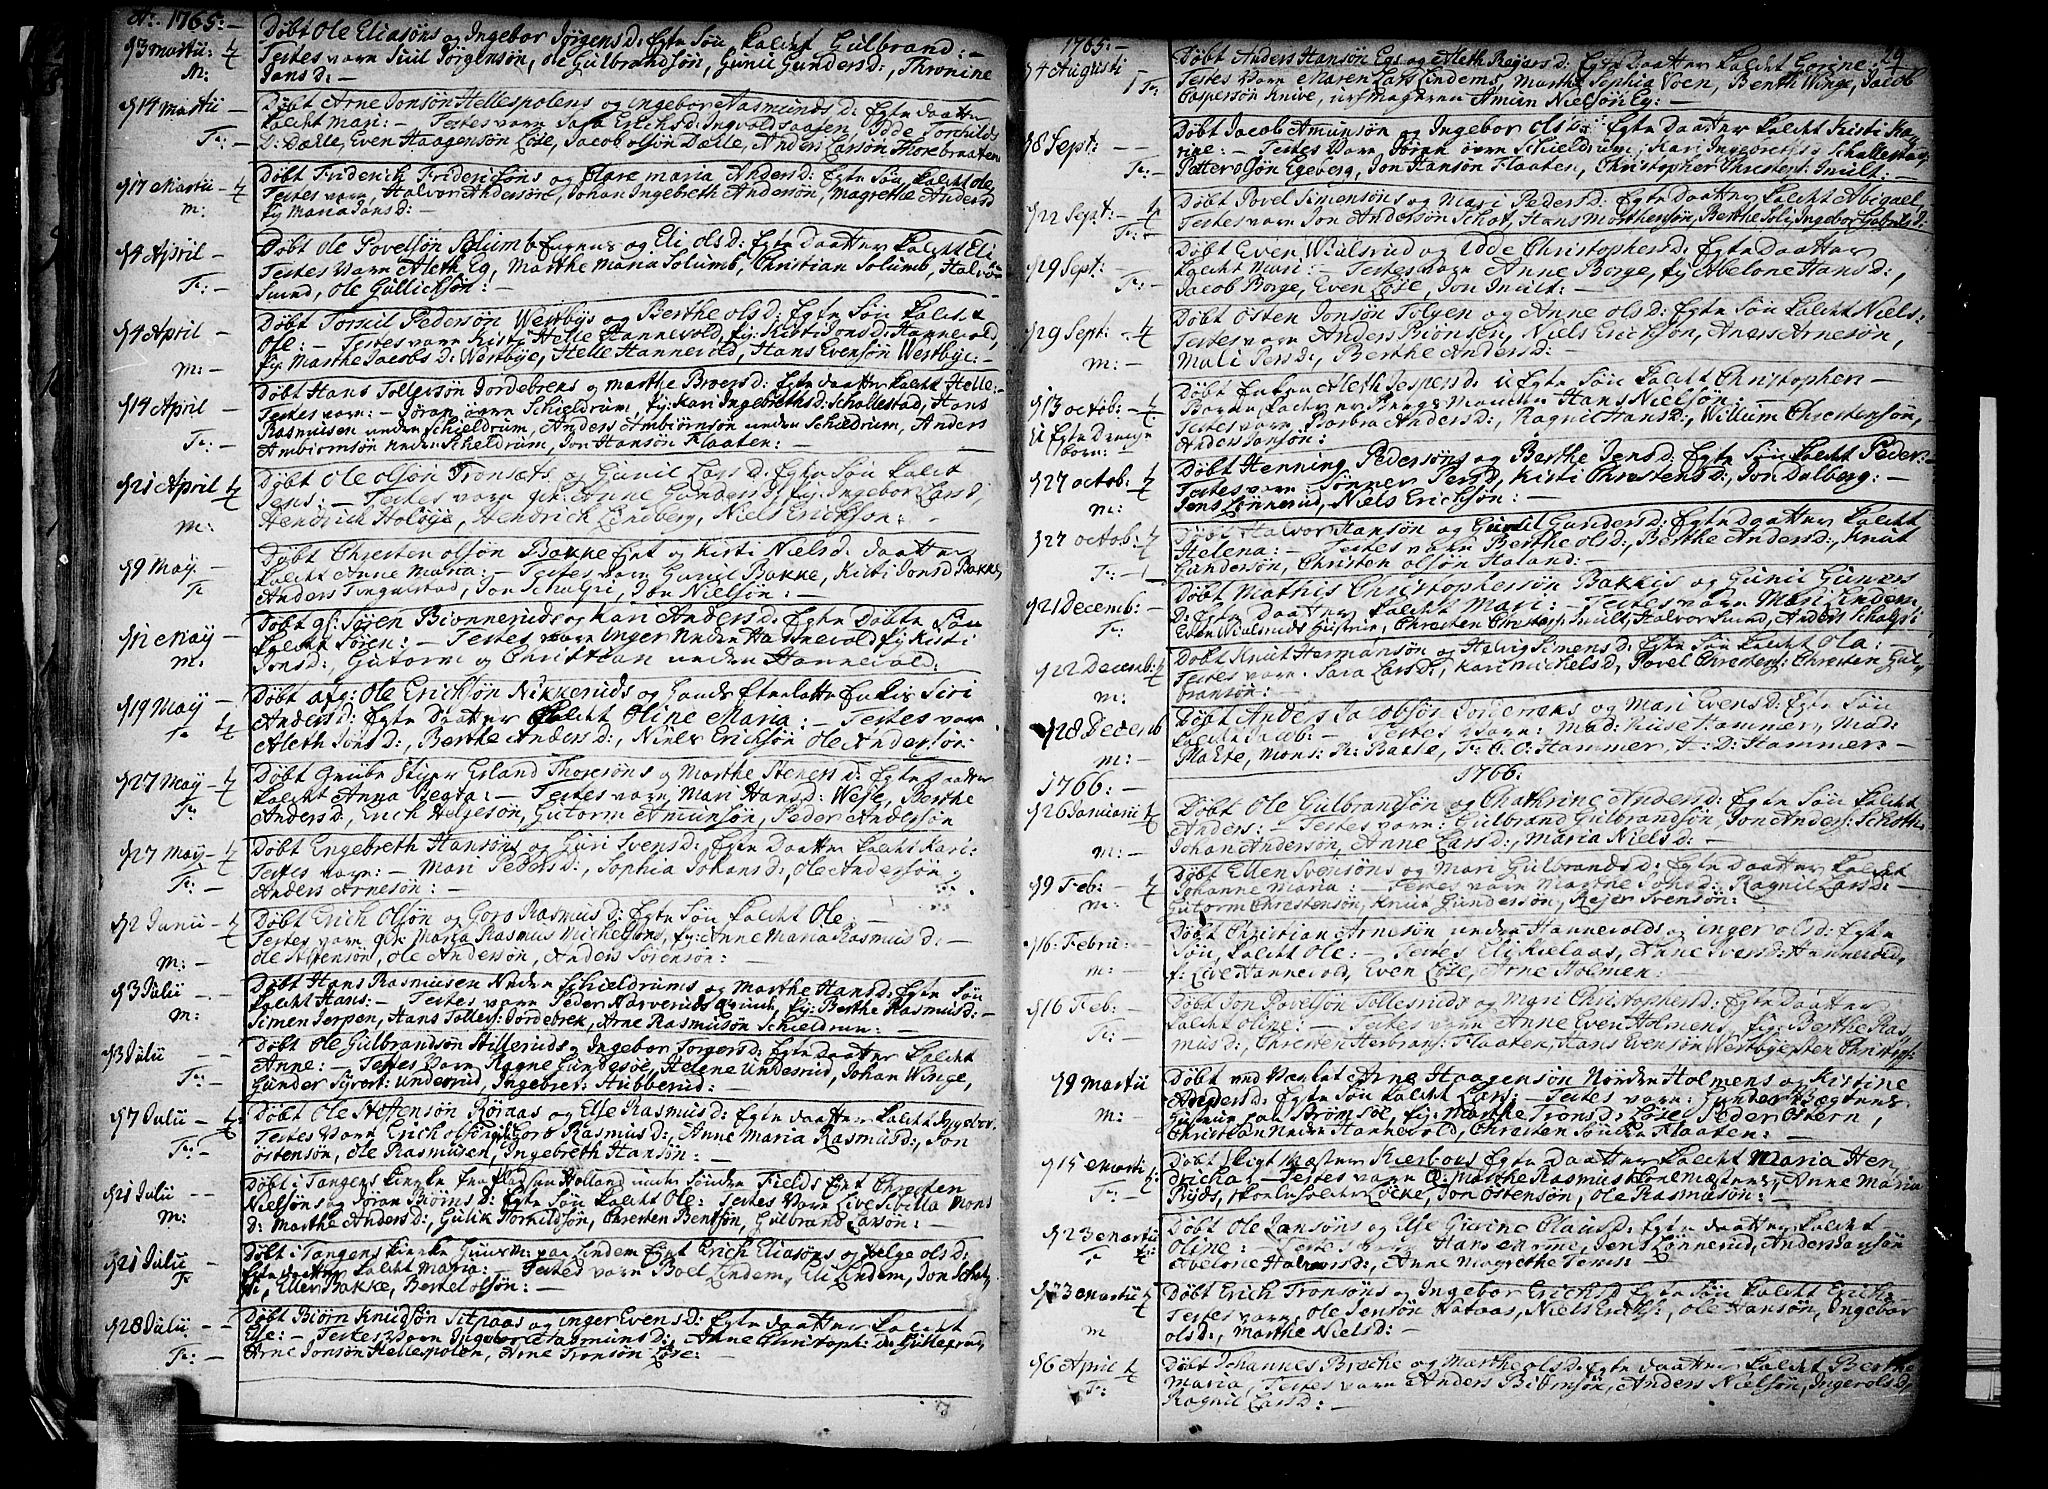 Ao. 1765: –
93 Martii: 4/
M: –
Døbt Ole Eliasöns og Ingebor Jörgensd: Egte Sön kaldt Gulbrand: –
Testes vare Siul Jörgensön, Ole Gulbrandsön, Gunil Gundersd:, Thronine
Jansd: –
914 Martii
Fr: –
Døbt Arne Jonsön Hellespolens og Ingebor Aasmundsd: Egte Daatter
kaldt Mari: – Testes vare Sara Erichsd: Ingvoldsaasen, Idde Torchilds
D: Dælle, Even Haagensön Löse, Jacob olsön Dælle, Anders Larsön Thorebraaten
917 Martii – 4/
M:
Døbt Friderich Fridericksöns og Clare Maria Andersd: Egte Sön kaldt Ole,
Testes vare Halvor Andersön, Johan Ingebreth Andersön, Magrethe Andersd
fy Maria Jansd: –
94 April –
Fr: –
Døbt Ole Povelsön Solumb og Eli Olsd: Egte Daatter kaldt Eli
Testes vare Aleth Eg, Marthe Maria Solumb, Christian Solumb, Halvor
Smed, Ole Gullichsön: –
94 April
M: –
Døbt Torkil Pedersön Westbys og Berthe Olsd: Egte Sön kaldt
Ole: – Testes vare Kisti Helle Hannevold, fy: Kisti Jonsd: Hannevold,
fy: Marthe Jacobsd: Westbye, Helle Hannevold, Hans Evensön Westbye: –
914 April
Fr: –
Døbt Hans Tollefsön Jordebreks og Marthe Broersd: Egte Daatter kaldt Helle:
Testes vare: – Joran övre Schieldrum, fy: Kari Ingebrethsd: Schallestad, Hans
Rasmusen under Schieldrum, Anders Ambiörnsön under Schieldrum, Anders
Ambiörnsön under Schieldrum, Jon Hansön Flaaten: –
921 April 4/
M: –
Døbt Ole Olsön Tronsæts og Gunil Larsd: Egte Sön kaldt
Jens: – Testes vare Anne Gundersd, fy: Ingebor Larsd,
Hendrich Holöye, Hendrich Lindberg, Niels Erickson: –
99 May –
Fr
Døbt Christen olsön Bakke og Kisti Nielsd: Daatter
kaldt Anne Maria: – Testes vare Gunil Bakke, Kisti Jonsd Bakke,
Anders Tingelstad, Jon Schalsri, Jon Nielsön: –
912 May –
M: –
Døbt Sören Bionnerud og Kari Andersd: Egte Sön
kaldt Sören: – Testes vare Inger under Hannevold, fy Kisti
Jonsd:, Gutorm og Christian under Hannevold:
919 May –
Fr 4/
Døbt Ole Erichsön Nikkeruds og Siri
Andersd: Egte Daatter kaldt Oline Maria: – Testes vare
Aleth Jonsd:, Berthe Andersd:, Niels Erichsön, Ole Andersön
927 May 4/
Fr: –
Døbt Grube Stiger Erland Thoresöns og Marthe Stenersd: Egte Daatter
kaldt Anna Regta: – Testes vare Mari Hansd: Wesle, Berthe
Andersd, Erich Helgesön, Gutorm Amunsön, Peder Andersön
927 May – 4/
Fr: –
Døbt Engebreth Hansöns og Guri Svensd: Egte Daatter kaldt Kari:
Testes vare: – Mari Pedersd:, Sophia Johansd:, Ole Andersön
Anders Arnesön: –
92 Junii – 4/
M: –
Døbt Erich Olsön og Goro Rasmusd: Egte Sön kaldt Ole: –
Testes vare Maria Rasmus Michelsöns, fy: Anne Maria Rasmusd: –
Ole Stensön, Ole Andersön, Anders Sörensön: –
93 Julii –
M: –
Døbt Hans Rasmusen under Schieldrums og Marthe Hansd: Egte Sön
kaldt Hans: – Testes vare Peder fy: Berthe Rasmusd: –
Simen Jerpen, Hans Tollefs: Jordebrek, Arne Rasmusön Schieldrum: –
93 Julii – –
Fr: –
Døbt Ole Gulbrandsön Hilleruds og Ingebor Torgersd: Egte Daatter kaldt
Anne: – Testes vare Ragne Gundesöe, Helene Undesrud, Johan Winge,
Gunder Undesrud, Ingebret Hubberud: –
97 Julii – 4/
Fr: –
Døbt Ole Stefensön Röinaas og Else Rasmusd: Egte Daatter kaldt Ingebor.
Testes vare Erich olsön, Goro Rasmusd:, Anne Maria Rasmusd:, Jon
Ostensön, Ole Rasmusen, Ingebreth Hansön: –
921 Julii – –
M: –
Døbt i Tangens kirke Christen
Nielsöns og Jöran Biörnsd: Egte Sön kaldt Ole: – Testes vare Live Sibilla Mons
D: Marthe Andersd:, Gulik Torkildsön, Christen Bentsön, Gulbrand Larsön: –
921 Julii –
Fr
Døbt i Tangens kirke Erich Eliasöns og Helge Olsd:
Egte Daatter kaldt Maria: – Testes vare Boel Lindem, Eli Lindem, Jon Schals
ri, Ellen Bakke, Bertel olsön: –
928 Julii – –
Fr: –
Døbt Biörn Knudsön Sitpaas og Inger Evensd: Egte Daatter kaldt
Else: – Testes vare Ingebor Aasmunsd:, Anne Christoph: D:
Arne Jonsön Hellespolen, Arne Tronsön Löse: –
1765: –
29
94 Augusti
Fr:
Døbt Anders Hansön Egs og Aleth Reijersd: Egte Daatter kaldt Corine:
Testes vare Maren Lars Lindems, Marthe Sophia Voen, Berth Winge, Jacob
Caspersön Knive, Amun Nielsön Eg: –
98 Sept: – –
Fr: –
Døbt Jacob Amunsön og Ingebor Olsd: Egte Daatter kaldt Kisti Ka
rine: – Testes vare Jöran övre Schieldrum, Kari Ingebrethsd Schallestad,
Petter olsön Egeberg, Jon Hansön Flaaten, Christopher Christens: Imult: –
922 Sept: – 4/
Fr: –
Døbt Povel Simensöns og Mari Pedersd: Egte Daatter kaldt Abigael
Testes vare Jon Andersön Schot, Hans Mortensön, Berthe Joli, Ingebor Gabrielsd:
929 Sept: –
Fr: –
Døbt Even Wiulsrud og Idde Christophersd: Egte Daatter
kaldt Mari: – Testes vare Anne Borge, fy Abelone Hansd:,
Jacob Borge, Even Löse, Jon Imult: –
929 Sept: – 4/
M: –
Døbt Osten Jonsön Tolgen og Anne Olsd: Egte Sön kaldt Niels:
Testes vare Anders Biönsen, Niels Erichsön, Anders Arnesön,
Mali Persd:, Berthe Andersd: –
913 Octob: – 4/
U Egte Drenge
barn: –
Døbt Enken Aleth Jespersd: U Egte Sön kaldt Christopher –
Barne fader er Hans Nielsön: –
Testes vare Barbra Andersd:, Ragnil Hansd:, Willum Christensön,
Anders Jansön:
927 Octob: 4/
M: –
Døbt Henning Pedersöns og Berthe Jensd: Egte Sön kaldt Peder: –
Testes vare: – Jönner Persd, Kisti Christensd:, Jon Dalberg: –
Jens Lönnerud, Niels Erichsön: –
927 Octob: 4/
Fr: –
Døbt Halvor Hansön og Gunil Gundersd: Egte Daatter kaldt
Helena: – Testes vare Berthe Olsd:, Berthe Andersd:, Knut
Gundersön, Christen olsön Holand: –
921 Decemb: –
Fr: –
Døbt Mathis Christophersön Bakkis og Gunil Guners
D: Egte Daatter kaldt Mari: – Testes vare Mari Lindem,
Even Wiulsruds Hustrue, Christen Christops: Imult, Halvor Smed, Anders Schalsri:
922 Decemb: 4/
M: –
Døbt Knut Hermansön og Helvig Simensd: Egte Sön kaldt Ola:
Testes vare: Sara Larsd:, Kari Michelsd, Povel Christens: Christen Gul
bransön: –
928 Decemb
M: –
Døbt Anders Jacobsön Jordebreks og Mari Evensd: Egte Sön
kaldt Jacob: – Testes vare: Mad: Kuse Hammer, Mad:
Malte, Mons: R: Bakke, Fr: O: O: Hammer, A: D: Hammer: –
1766: –
1766:
926 Januarii 4/
M: –
Døbt Ole Gulbrandsön og Chathrine Andersd: Egte Sön kaldt
Anders: – Testes vare: Gulbrand Gulbrandsön, Jon Anders: Schoth,
Johan Andersön, Anne Larsd:, Maria Nielsd: –
99 Feb: – 4/
M: –
Døbt Ellen Svensöns og Mari Gulbrandsd: Egte Daatter kaldt
Johanne Maria: – Testes vare Marthe Johsd: Ragnil Larsd: –
Gutorm Christensön, Knut Gundersön, Rejer Svensön: –
916 Febru: –
M: –
Døbt Christian Arnesön under Hannevolds og Inger Olsd: Egte
Sön kaldt Ole: – Testes Eli Kiselaas, Anne Svensd: Hannevold,
f: Live Hannevold, Even Löse, Arne Holmen: –
916 Feb: –
Fr: –
Døbt Jon Povelsön Tollesruds og Mari Christophersd: Egte Daatter
kaldt Oline: – Testes vare Anne Even Holmens, fy: Berthe Ras
musd:, Christen Herbrans: Flaaten, Hans Evensön Westbye, Sten Christops:
99 Martii
M: –
Døbt ved Arne Haagensön Nordre Holmens og Kistine
Andersd: Egte Sön kaldt Lars: – Testes vare: Gunder Bægtens
Hustrue fra Strömsöe, fy: Marthe Tronsd: Löse, Peder Ostern,
Christian under Hannevold, Christen Sönder Flaaten: –
915 Martii 4/
Fr: –
Døbt Kierbous Egte Daatter kaldt Maria Hen
dricha: – Testes vare Marthe Rasmus Anne Maria
Ryds, Löcke, Jon Ostensön, Ole Rasmusön: –
923 Martii
Fr 4/
Døbt Ole Jansöns og Else Gurine Clausd: Egte Daatter kaldt –
Oline: – Testes vare Hans Jens Lönnerud, Anders Jansön
Abelone Halvorsd:, Anne Magrethe Jens: –
923 Martii 4/
M
Døbt Erich Tronsöns og Ingebor Erichsd Egte Sön kaldt Erich:
Testes vare: Ole Jensön Vataas, Niels Erichs:, Ole Hansön, Ingebor
Olsd:, Marthe Nielsd: –
96 April 4/
Fr: –
Døbt Johannes Breche og Marthe Olsd: Egte Daatter kaldt Berthe
Maria, Testes vare Anders Biörnsön, Anders Nielsön, Inger Olsd,
Ragnil Larsd: –